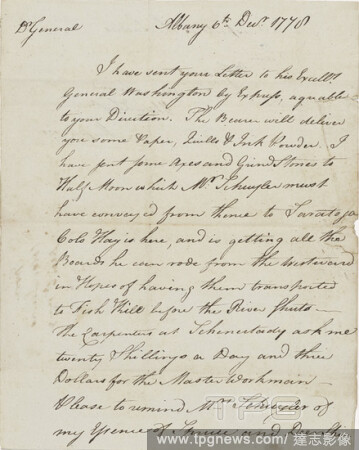 Dr General
Albany 6th Decr 1778
I have sent your Letter to his Excelly
General Washington by Express, agreable
to your Direction. The Bearer will deliver
you some Paper, Quills & Ink Powder. I
have sent some Axes and Grind Stones to
Half Moon which Mr. Schuyler must
have convey'd from thence to Saratoga
Colo Hay is here, and is getting all the
Boards he can rode from the westward
in Hopes of having them transported
to Fish Kill before the River shuts—
the Carpenters at Schenectady ask me
twenty Shillings a Day and three
Dollars for the Master Workman—
Please to remind Mrs Schuyler of
my Essence of Spruce and
TPG
www.tpgnews.com/達志影像